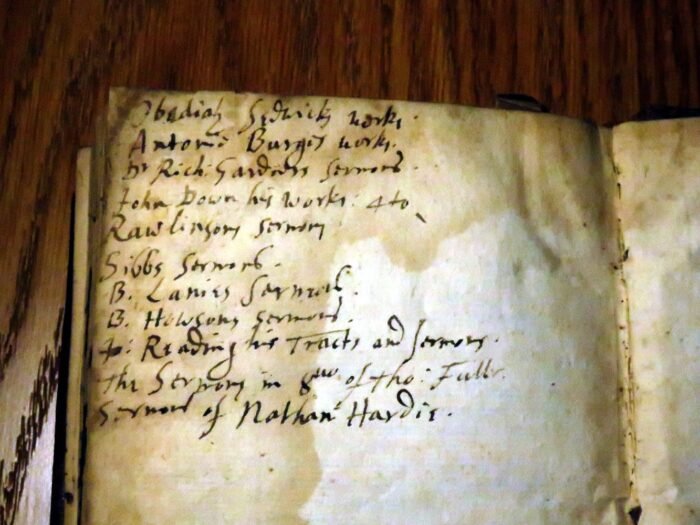 Obadiah Sedwick works.
Antonie Burges works.
Dr Rich: Gardners sermons.
John Down his works: 4to
Rawlinsons sermons
Sibbs Sermons.
B. Lanies Sermons.
B. Howsons sermons.
Jo: Reading his Tracts and sermons.
The Sermons in 8vo of Tho: Fuller.
Sermons of Nathan Hardie.